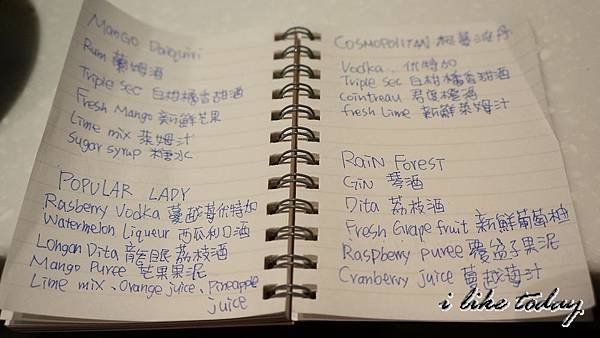 Mango Daiquiri
Rum 蘭姆酒
Triple sec 白柑橘香甜酒
Fresh Mango 新鮮芒果
Lime mix 萊姆汁
Sugar syrup 糖水
POPULAR LADY
Rasberry Vodka 蔓越莓伏特加
Watermelon Liqueur 西瓜利口酒
Longan Dita 龍眼荔枝酒
Mango Puree 芒果果泥
Lime mix、Orange juice、Pineapple
juice
COSMOPOLITAN 柯夢波丹
Vodka 伏特加
Triple sec 白柑橘香甜酒
Cointreau 君度橙酒
fresh Lime 新鮮萊姆汁
RAIN FOREST
Gin 琴酒
Dita 荔枝酒
Fresh Grape fruit 新鮮葡萄柚
Raspberry puree 覆盆子果泥
Cranberry juice 蔓越莓汁
i like today